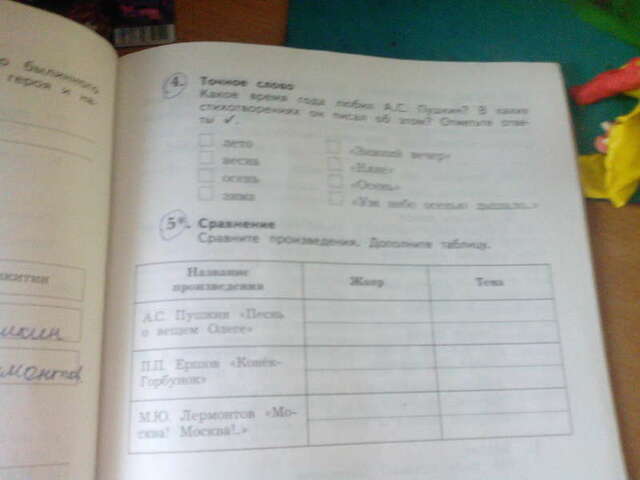 былинного
героя и на-
4. Точное слово
Какое время года любил А.С. Пушкин? В каких
стихотворениях он писал об этом? Отметьте отве-
ты ✓.
лето
весна
осень
зима
«Зимний вечер»
«Няне»
«Осень»
«Уж небо осенью дышало..»
5*. Сравнение
Сравните произведения. Дополните таблицу.
Название
произведения
Жанр
Тема
А.С. Пушкин «Песнь
о вещем Олеге»
П.П. Ершов «Конёк-
Горбунок»
М.Ю. Лермонтов «Мо-
сква! Москва!..»